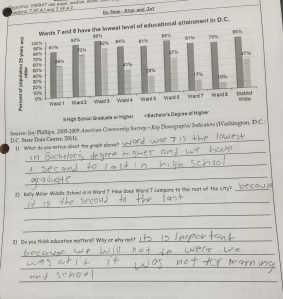 Objective: SWBAT use mean, median,
Do Now: Stop and Jot
Wards 7 and 8 have the lowest level of educational attainment in D.C.
Percent of population 25 years and older
100%
90%
80%
70%
60%
50%
40%
30%
20%
10%
0%
Ward 1 Ward 2 Ward 3 Ward 4 Ward 5 Ward 6 Ward 7 Ward 8 District Wide
High School Graduate or Higher Bachelor's Degree of Higher
Source: Joe Phillips, 2005-2009 American Community Survey – Key Demographic Indicators (Washington, D.C.:
D.C. State Data Center, 2011).
1) What do you notice about the graph above? word war 7 is the lowest
in Bachelors degree higher and we have
second to last in high school
graduate
2) Kelly Miller Middle School is in Ward 7. How does Ward 7 compare to the rest of the city? because
it is the second to the last
3) Do you think education matters? Why or why not? its is important
because we will not be were we
was at if it was not for learning
and school